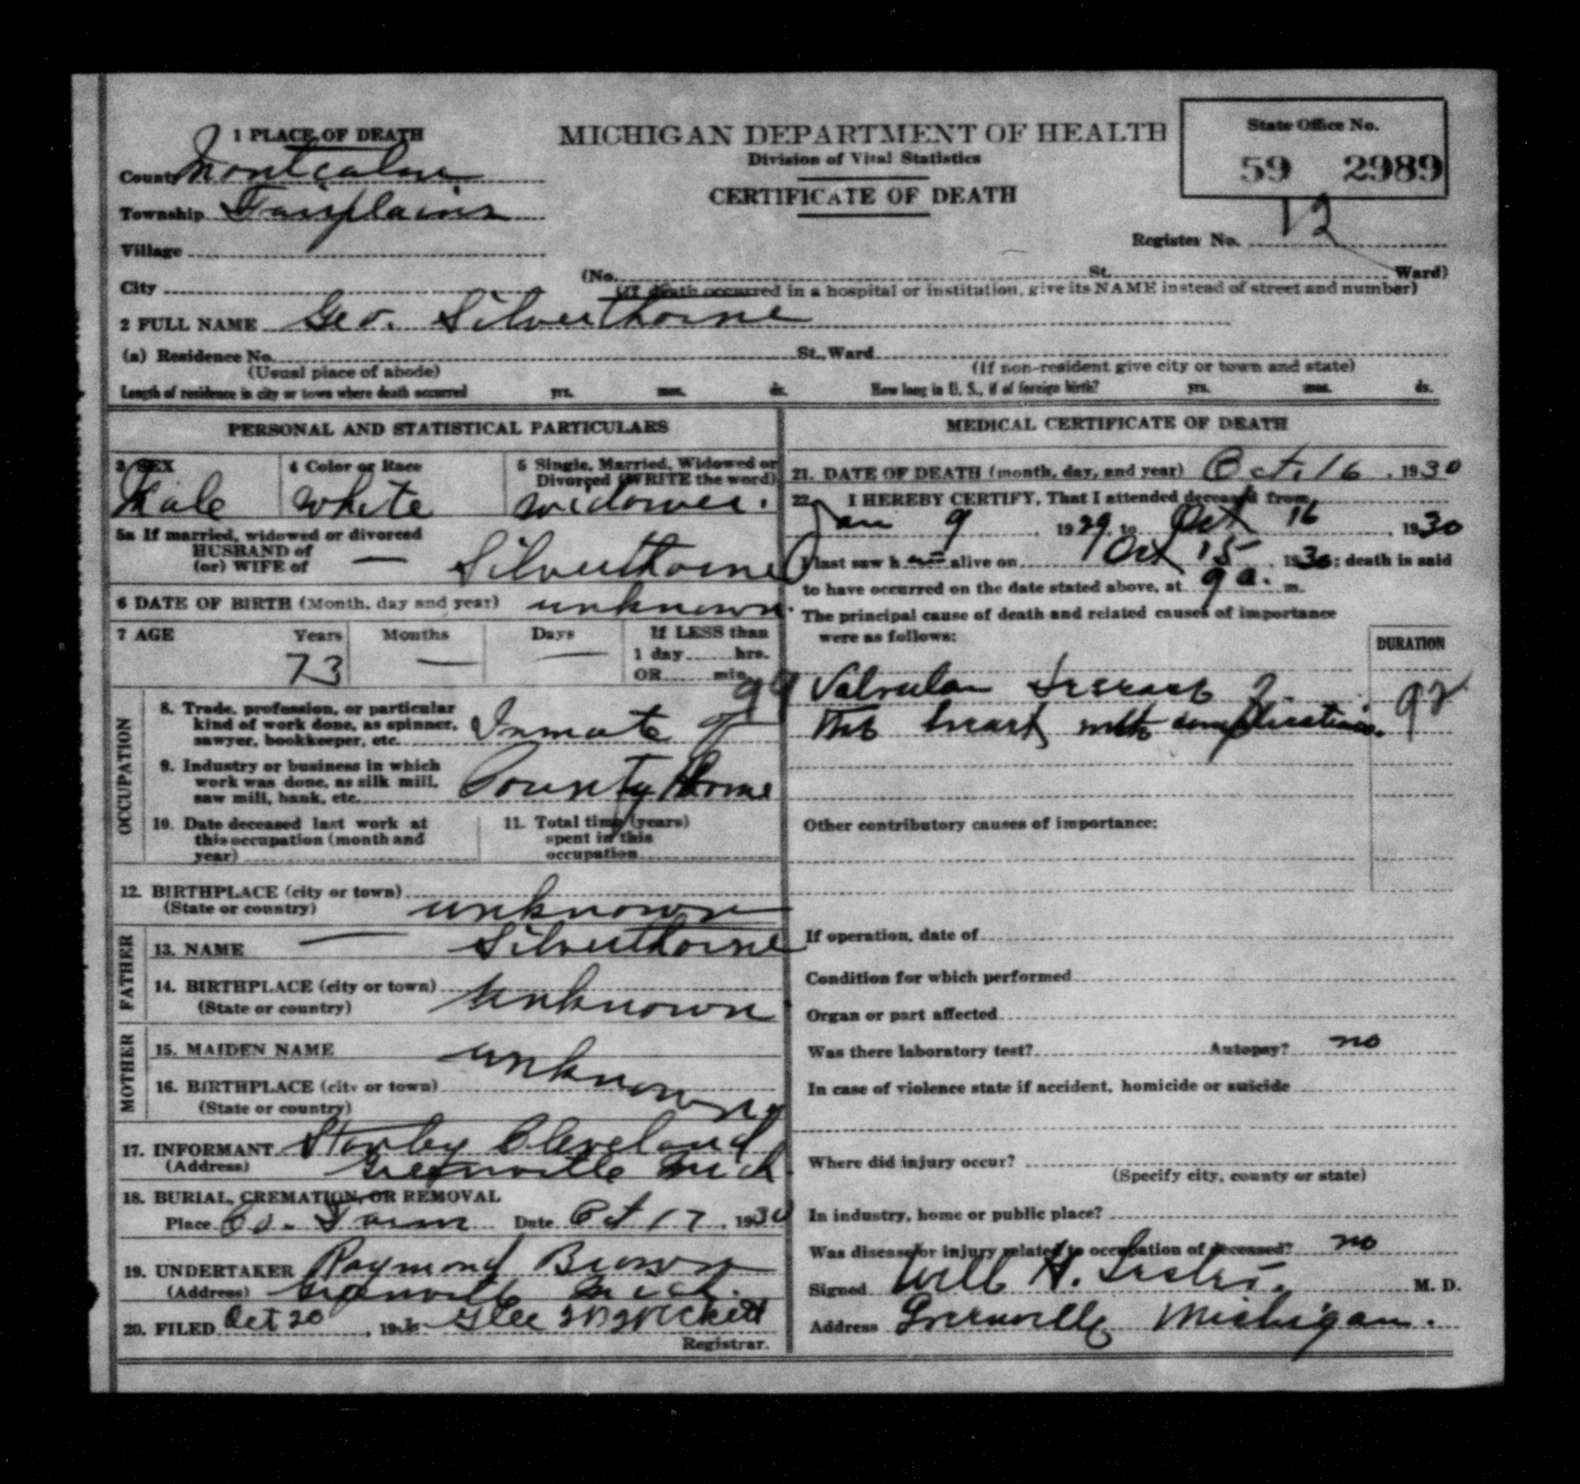 1 PLACE OF DEATH
County Montcalm
Township Fairplains
Village
City
MICHIGAN DEPARTMENT OF HEALTH
Division of Vital Statistics
CERTIFICATE OF DEATH
State Office No.
59 2989
Register No. 12
(No. St. Ward)
(If death occurred in a hospital or institution, give its NAME instead of street and number)
2 FULL NAME Geo. Silverthorne
(a) Residence No. St., Ward
(Usual place of abode) (If non-resident give city or town and state)
Length of residence in city or town where death occurred yrs. mos. ds. How long in U. S., if of foreign birth? yrs. mos. ds.
PERSONAL AND STATISTICAL PARTICULARS
3 SEX
Male
4 Color or Race
White
5 Single, Married, Widowed or
Divorced (WRITE the word)
widower.
5a If married, widowed or divorced
HUSBAND of
(or) WIFE of — Silverthorne
6 DATE OF BIRTH (Month, day and year) unknown.
7 AGE Years Months Days If LESS than
1 day hrs.
73 — — OR min.
OCCUPATION
8. Trade, profession, or particular
kind of work done, as spinner,
sawyer, bookkeeper, etc. Inmate of
9. Industry or business in which
work was done, as silk mill,
saw mill, bank, etc. County Home
10. Date deceased last work at
this occupation (month and
year)
11. Total time (years)
spent in this
occupation
12. BIRTHPLACE (city or town)
(State or country) unknown
FATHER
13. NAME — Silverthorne
14. BIRTHPLACE (city or town)
(State or country) unknown
MOTHER
15. MAIDEN NAME unknown
16. BIRTHPLACE (city or town)
(State or country)
17. INFORMANT Stanley Cleveland
(Address) Greenville Mich
18. BURIAL, CREMATION, OR REMOVAL
Place Co. Farm Date Oct 17, 1930
19. UNDERTAKER Raymond Brown
(Address) Greenville Mich.
20. FILED Oct 20, 19 Glee
Registrar.
MEDICAL CERTIFICATE OF DEATH
21. DATE OF DEATH (month, day, and year) Oct. 16, 1930
22. I HEREBY CERTIFY, That I attended deceased from
Jan 9, 1929, to Oct 16, 1930
I last saw h alive on Oct 15, 1930; death is said
to have occurred on the date stated above, at 9 a. m.
The principal cause of death and related causes of importance
were as follows:
DURATION
Valvular Disease of
the heart with complications.
Other contributory causes of importance:
If operation, date of
Condition for which performed
Organ or part affected
Was there laboratory test? Autopsy? no
In case of violence state if accident, homicide or suicide
Where did injury occur?
(Specify city, county or state)
In industry, home or public place?
Was disease or injury related to occupation of deceased? no
Signed Will H. M. D.
Address Greenville Michigan.